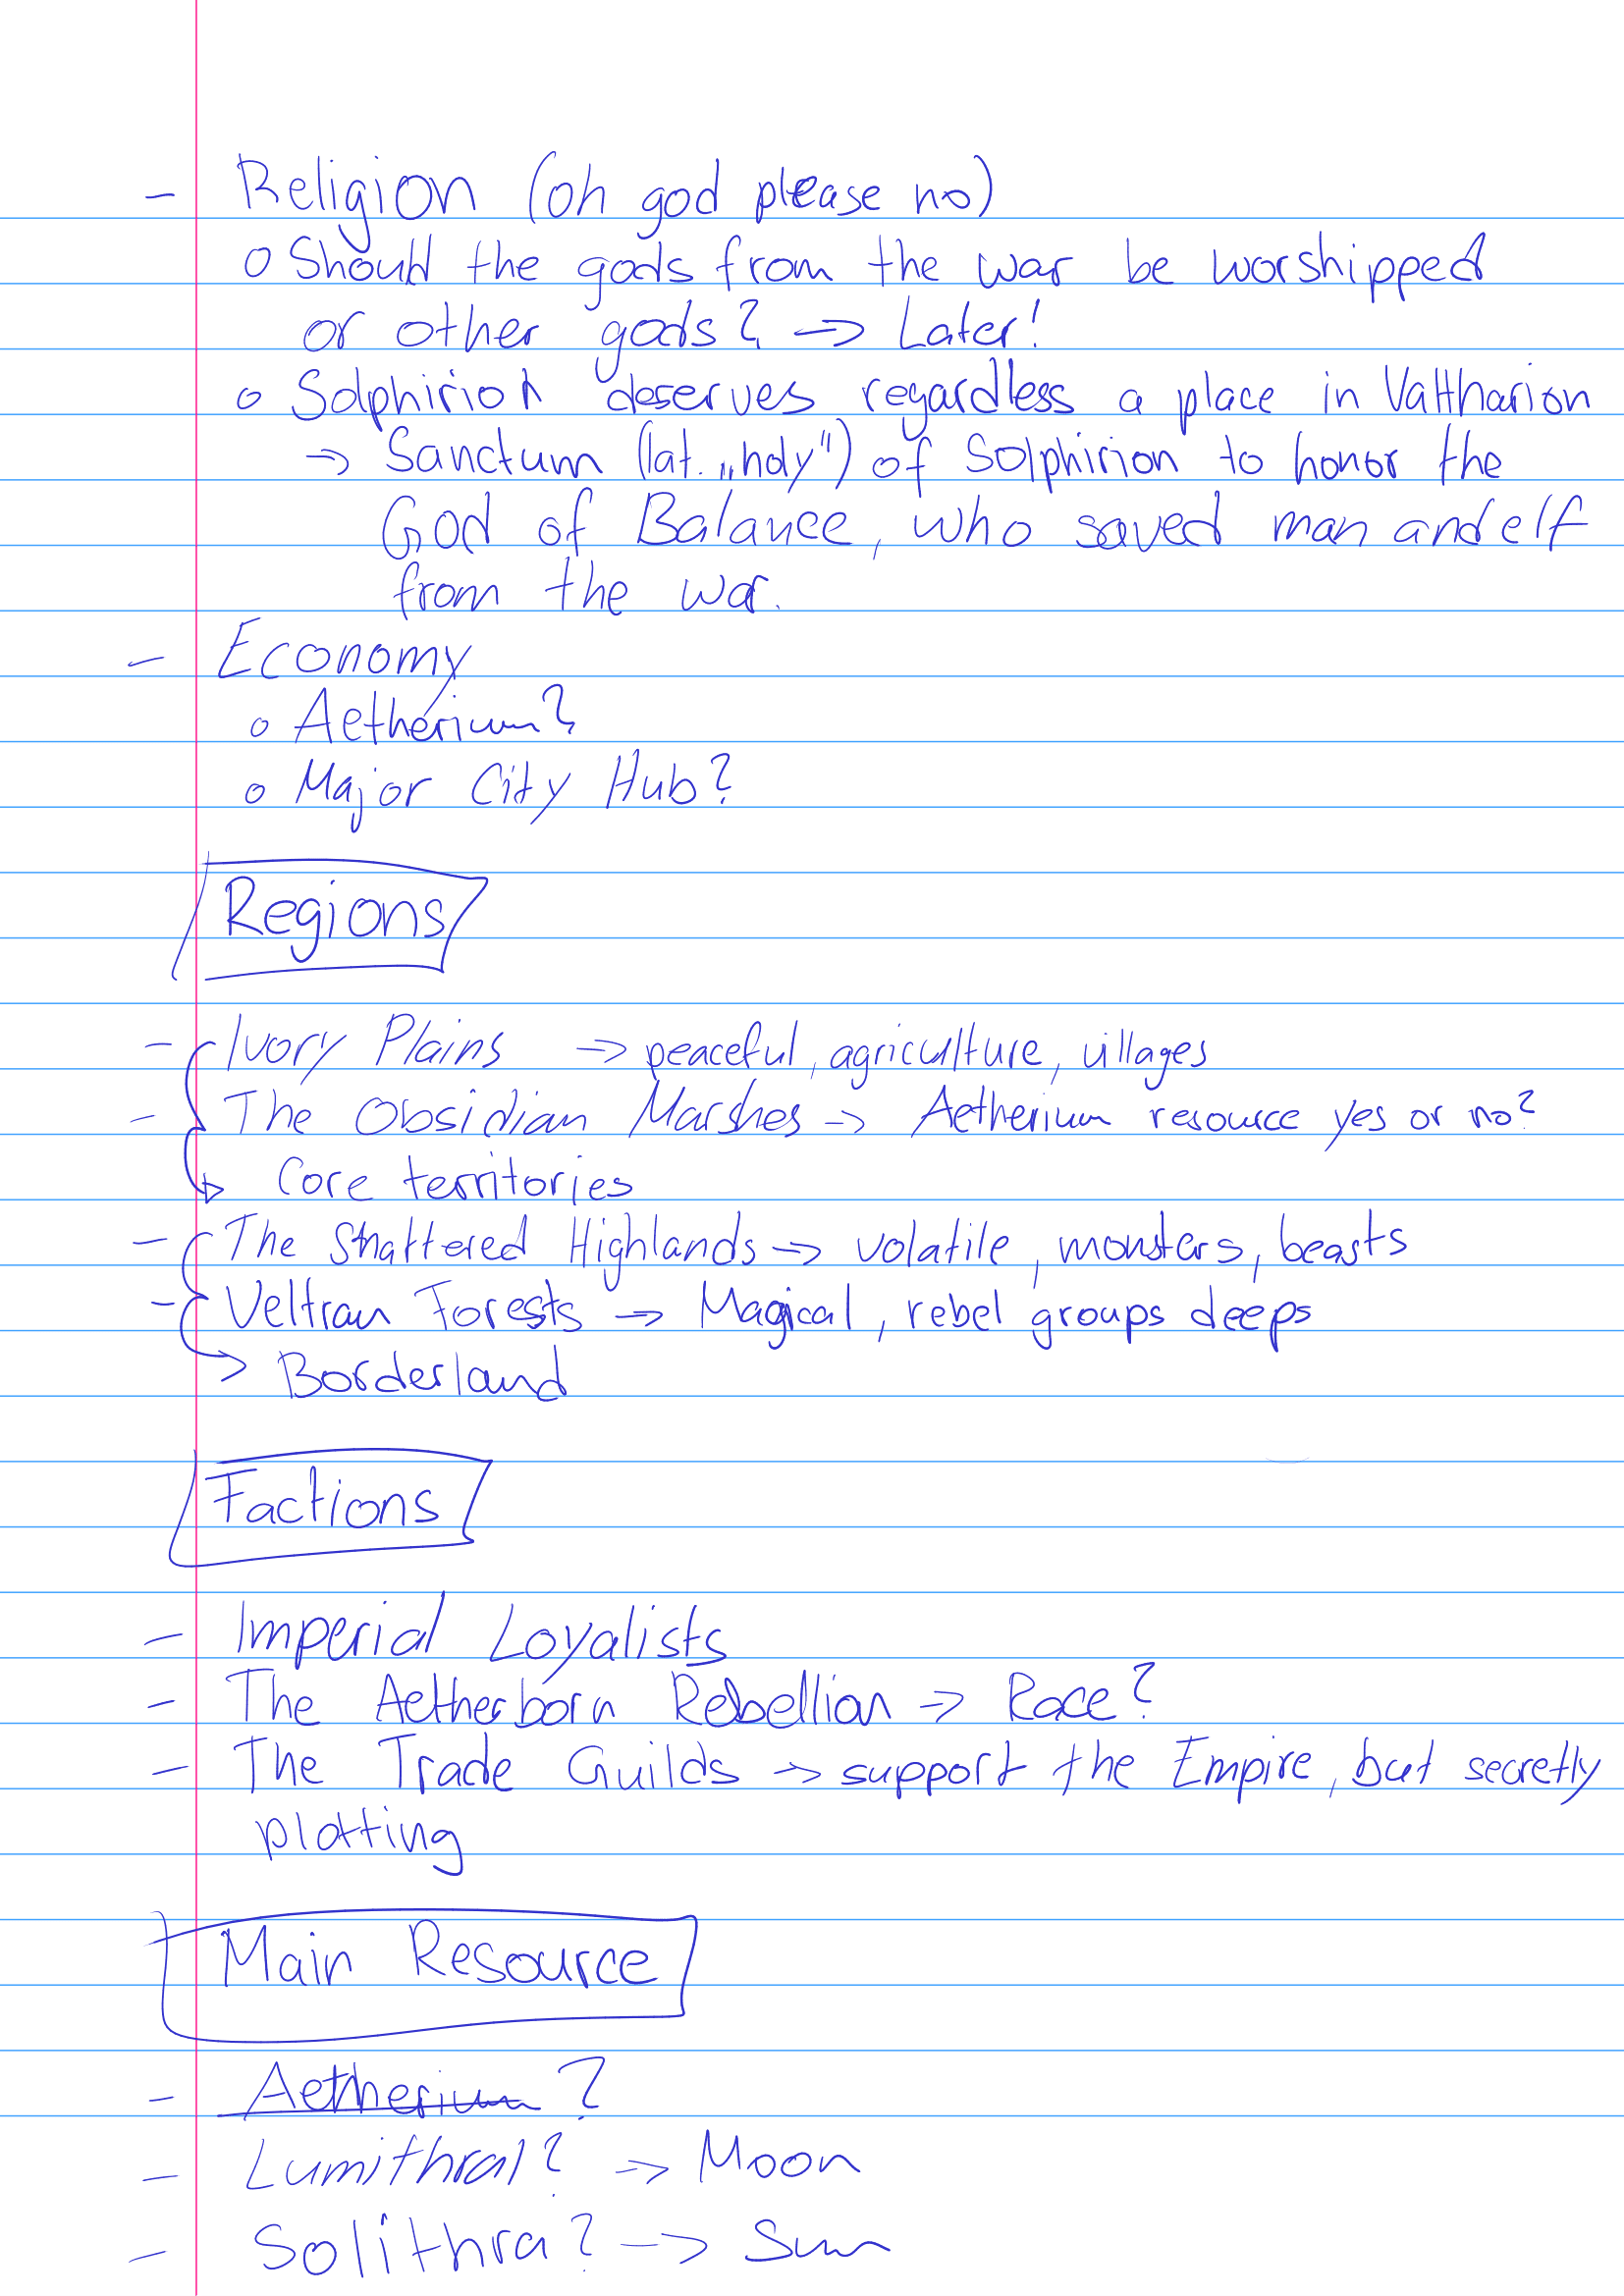 - Religion (oh god please no)
o Should the gods from the war be worshipped
or other gods? -> Later!
o Solphirion deserves regardless a place in Valtharion
-> Sanctum (lat. „holy") of Solphirion to honor the
God of Balance, who saved man and elf
from the war.
- Economy
o Aetherium?
o Major City Hub?
Regions
- Ivory Plains -> peaceful, agriculture, villages
- The Obsidian Marshes -> Aetherium resource yes or no?
-> Core territories
- The Shattered Highlands -> volatile, monsters, beasts
- Veltran Forests -> Magical, rebel groups deeps
-> Borderland
Factions
- Imperial Loyalists
- The Aetherborn Rebellion -> Race?
- The Trade Guilds -> support the Empire, but secretly
plotting
Main Resource
- Aetherium?
- Lumithral? -> Moon
- Solithra? -> Sun